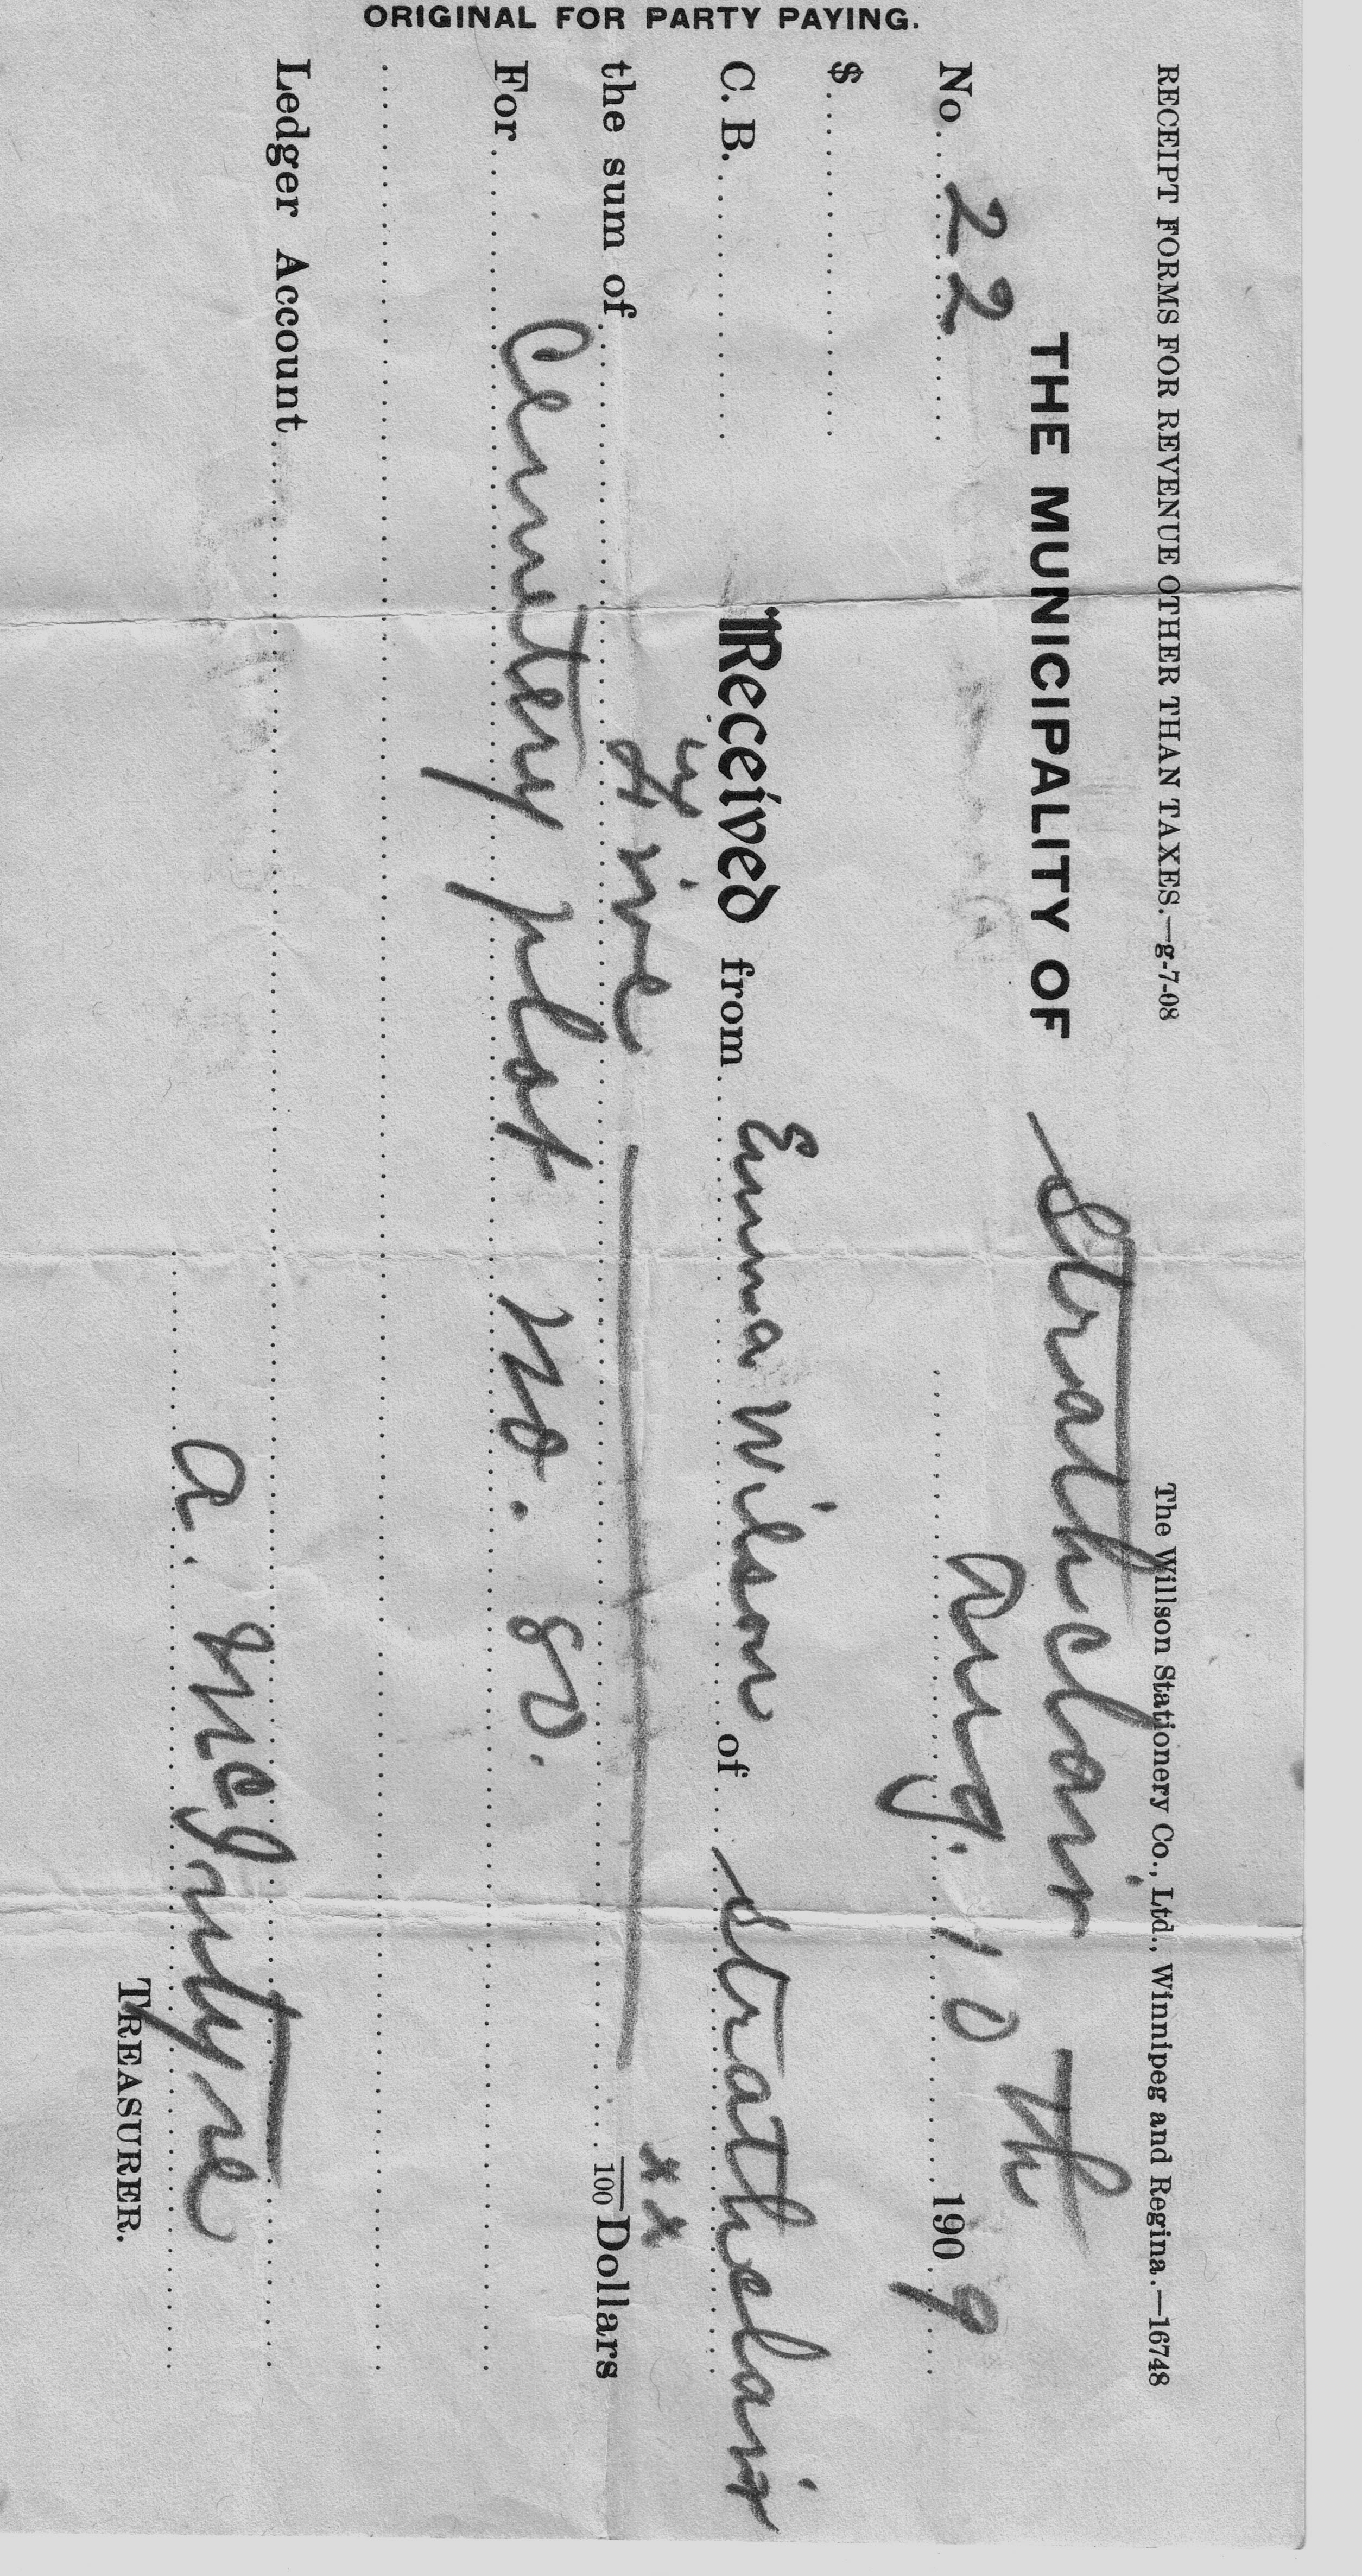 RECEIPT FORMS FOR REVENUE OTHER THAN TAXES.—g-7-08 The Willson Stationery Co., Ltd., Winnipeg and Regina.—16748
THE MUNICIPALITY OF Strathclair
No. 22 Aug. 10 th 1909
$
C. B. Received from Emma Wilson of Strathclair
the sum of Five xx/100 Dollars
For Cemetery plot No. 80.
Ledger Account
A. McIntyre
TREASURER.
ORIGINAL FOR PARTY PAYING.